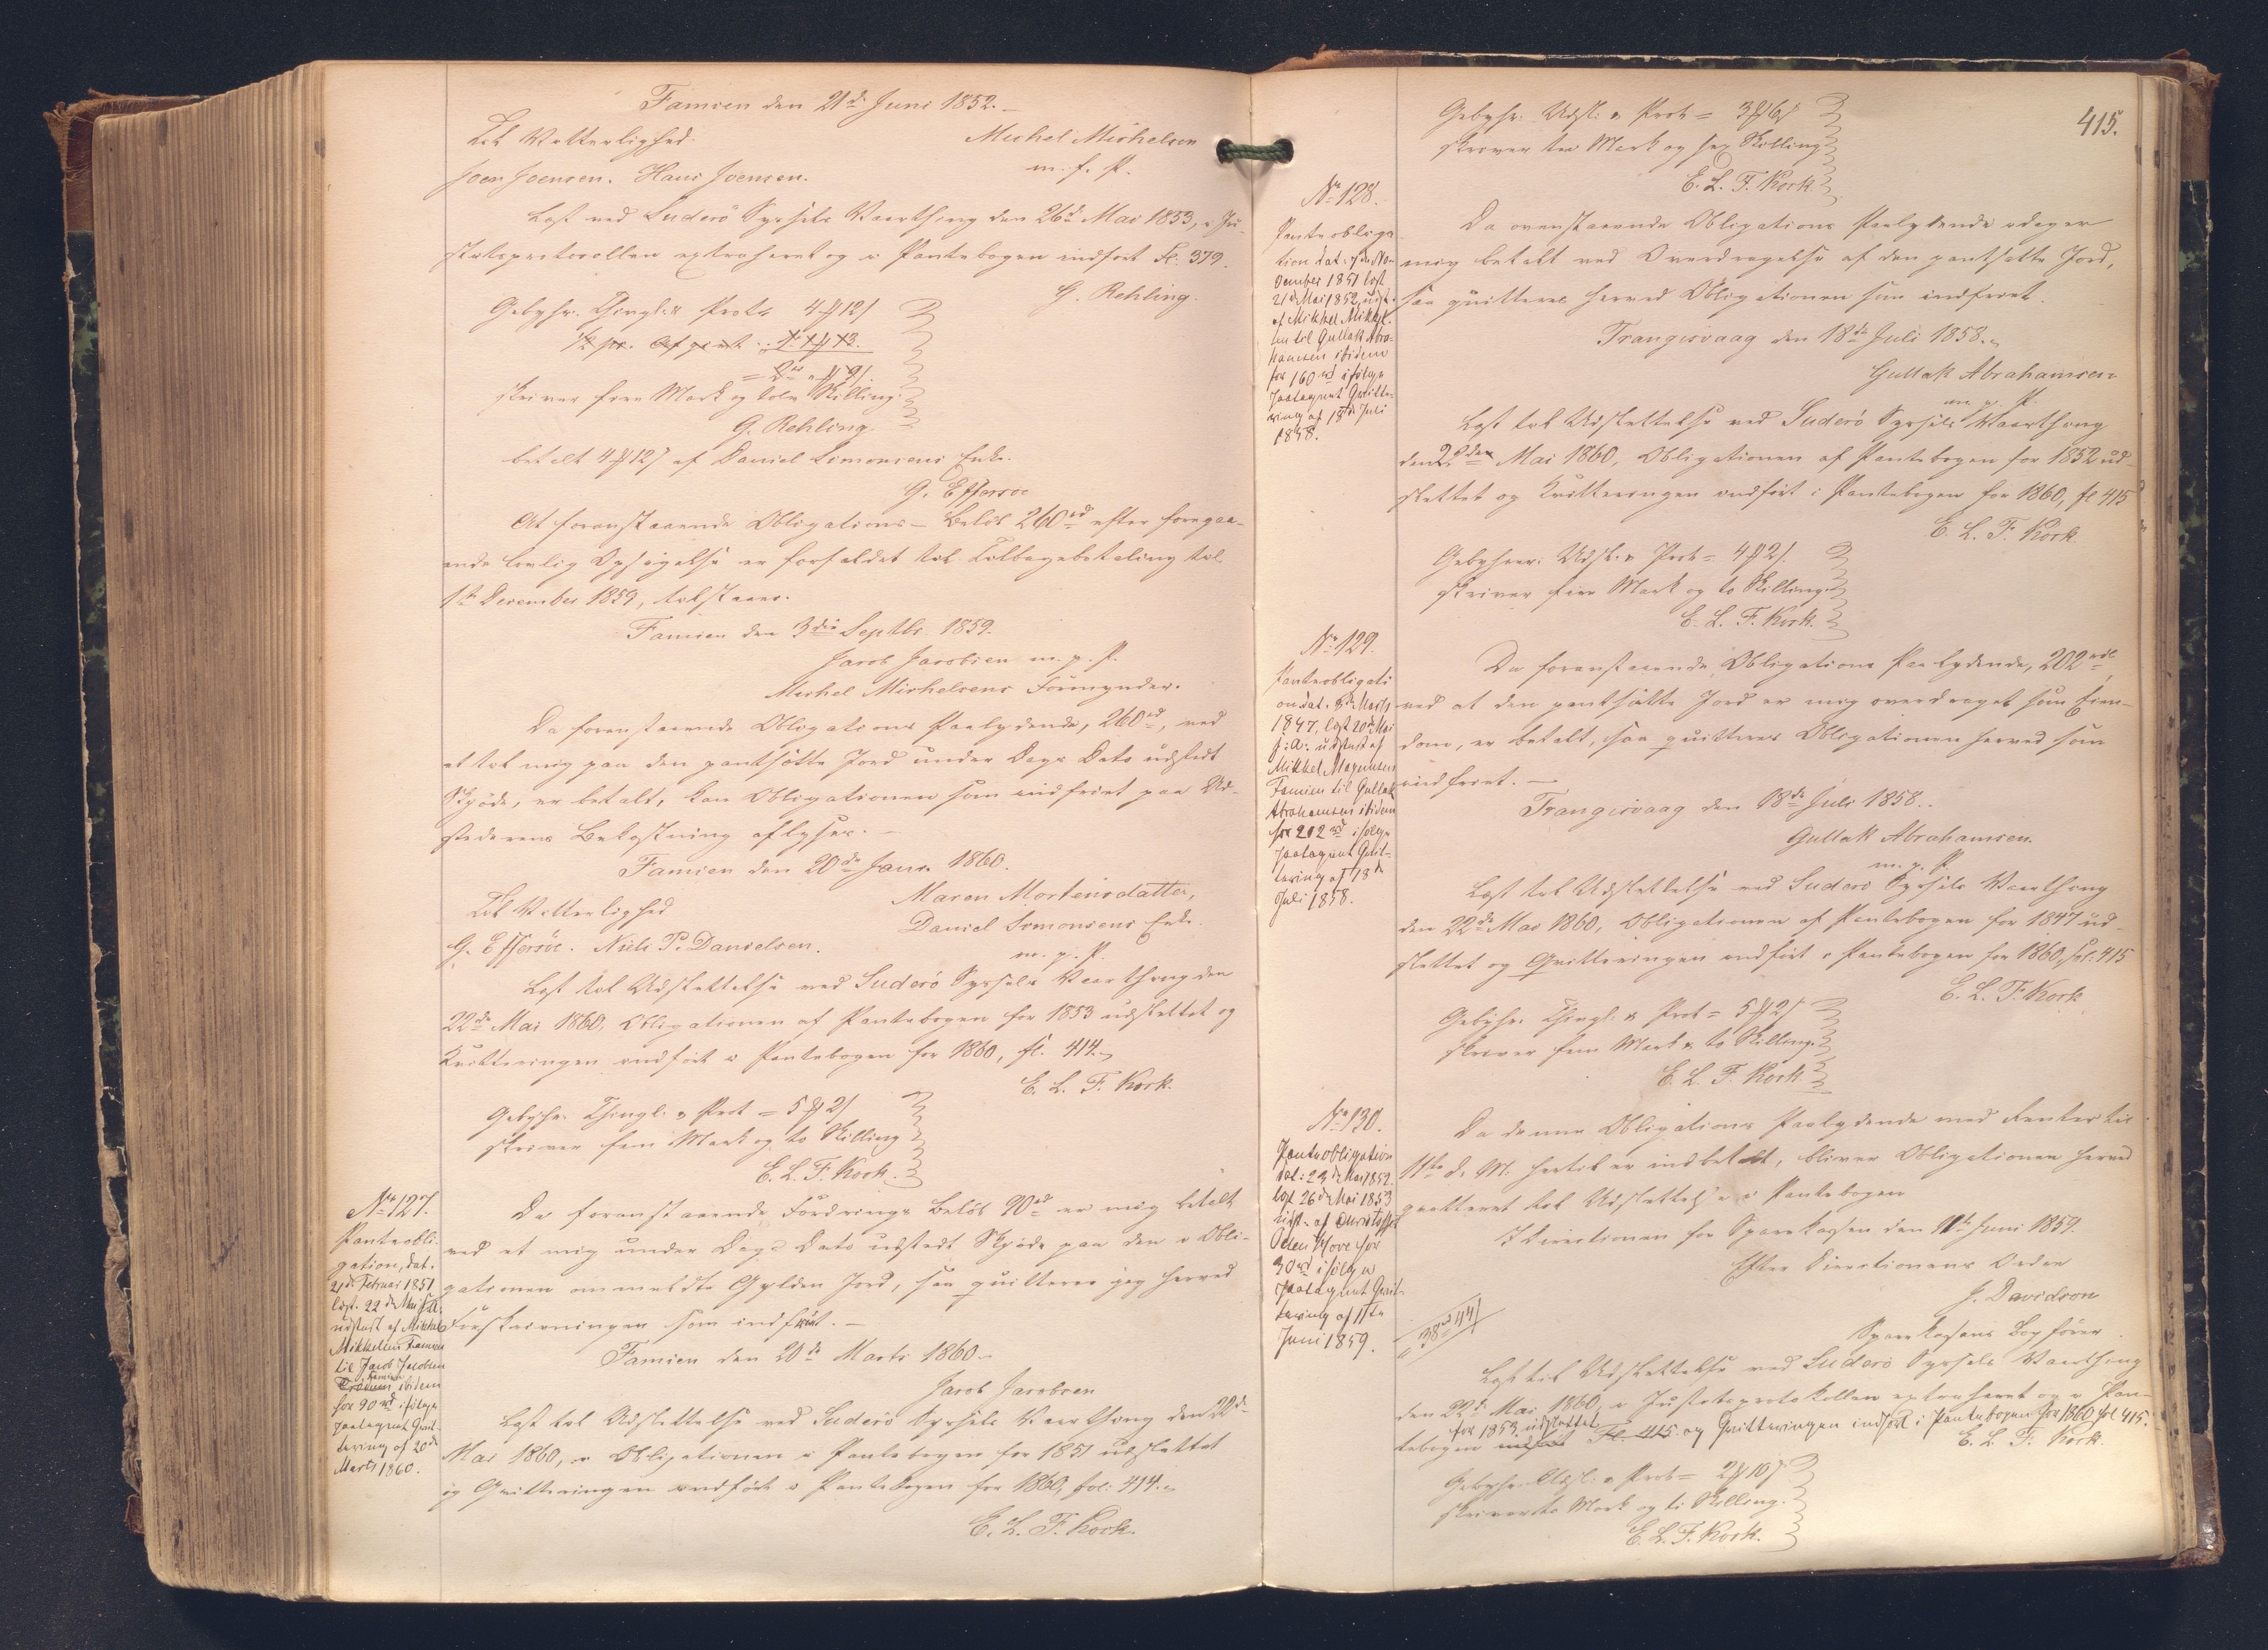 Famien den 21de Juni 1852.
Til Vitterlighed.
Michel Michelsen
m. f. P.
Joen Joensen. Hans Joensen.
Læst ved Suderö Syssels Vaarthing den 26de Mai 1853, i Ju-
stitsprotocollen extraheret og i Pantebogen indfört Fl. 379.
G. Rehling.
Gebyhr. Thingl. & Prot. 4 12
skriver fire Mark og tolv Skilling.
G. Rehling.
betalt 4 12 af Daniel Simonsens Enke.
G. Effersöe
At foranstaaende Obligations-Belöb 260 rd efter foregaa-
ende lovlig Opsigelse er forfaldet til Tilbagebetaling til
1ste December 1859, tilstaaes.
Famien den 3die Septbr. 1859.
Jacob Jacobsen m. p. P.
Michel Michelsens Formynder.
Da foranstaaende Obligations Paalydende, 260 rd, ved
et til mig paa den pantsatte Jord under Dags Dato udstedt
Skjöde, er betalt, kan Obligationen som indfriet paa Ud-
stederens Bekostning aflyses.
Famien den 20de Janr. 1860.
Til Vitterlighed
Maren Mortensdatter,
Daniel Simonsens Enke.
G. Effersöe. Niels P. Danielsen.
m. p. P.
Læst til Udslettelse ved Suderö Syssels Vaarthing den
22de Mai 1860, Obligationen af Pantebogen for 1853 udslettet og
Kvitteringen indfört i Pantebogen for 1860, fl. 414.
E. L. F. Kock.
Gebyhr. Thingl. & Prot = 5 2
skriver fem Mark og to Skilling
E. L. F. Kock.
No 127.
Panteobli-
gation, dat.
21de Februar 1851
læst. 22de Mai s. A.
udstædt af Mikkel
Mikkelsen Famien
til Jacob Jacobsen
Famien
ibidem
for 90 rd ifölge
paategnet Qvit-
tering af 20de
Marts 1860.
Da foranstaaende Fordrings Belöb 90 rd er mig betalt
ved et mig under Dags Dato udstedt Skjöde paa den i Obli-
gationen ommeldte Gylden Jord, saa quitteres jeg herved
Forskrivningen som indfriet.
Famien den 20de Marts 1860
Jacob Jacobsen
Læst til Udslettelse ved Suderö Syssels Vaarthing den 22de
Mai 1860, Obligationen i Pantebogen for 1851 udslettet
og Qvitteringen indfört i Pantebogen for 1860, fol: 414.
E. L. F. Kock.
415.
Gebyhr. Udsl. & Prot = 3 6
skriver tre Mark og sex Skilling
E. L. F. Kock
No 128.
Panteobliga-
tion dat. 7de No-
vember 1851 læst
21de Mai 1852, udst.
af Mikkel Mikkel-
sen til Gullak Abra-
hamsen ibidem
for 160 rd ifölge
paategnet Qvitte-
ring af 18de Juli
1858.
Da ovenstaaende Obligations Paalydende idag er
mig betalt ved Overdragelse af den pantsatte Jord,
saa quitteres herved Obligationen som indfriet.
Trangisvaag den 18de Juli 1858.
Gullak Abrahamsen
m. p. P.
Læst til Udslettelse ved Suderö Syssels Vaarthing
den 22den Mai 1860, Obligationen af Pantebogen for 1852 ud-
slettet og Kvitteringen indfört i Pantebogen for 1860, fl 415
E. L. F. Kock.
Gebyhrer: Udsl. & Prot = 4 2
skriver fire Mark og to Skilling.
E. L. F. Kock.
No 129.
Panteobligati-
on dat. 8de Marts
1847, læst 20de Mai
s. A. udstædt af
Mikkel Magnusen
Famien til Gullak
Abrahamsen ibidem
for 202 rd ifölge
paategnet Qvit-
tering af 18de
Juli 1858.
Da foranstaaende Obligations Paalydende, 202 rd,
ved at den pantsatte Jord er mig overdraget som Eien-
dom, er betalt, saa quitteres Obligationen herved som
indfriet.
Trangisvaag den 18de Juli 1858.
Gullak Abrahamsen.
m. p. P.
Læst til Udslettelse ved Suderö Syssels Vaarthing
den 22de Mai 1860, Obligationen af Pantebogen for 1847 ud-
slettet og Qvitteringen indfört i Pantebogen for 1860, fol: 415
E. L. F. Kock
Gebyhr. Thingl. & Prot = 5 2
skriver fem Mark & to Skilling.
E. L. F. Kock
No 130.
Panteobligation
dat: 23de Mai 1852
læst 26de Mai 1853
udst. af
for
30 rd ifölge
paategnet Qvit-
tering af 11te
Juni 1859.
Da denne Obligations Paalydende med Renter til
11te d. M. hertil er indbetalt, bliver Obligationen herved
quitteret til Udslettelse i Pantebogen
I Directionen for Sparekassen den 11te Juni 1859
Efter Directionens Orden
J. Davidson
Sparekassens Bogförer.
Læst til Udslettelse ved Suderö Syssels Vaarthing
den 22de Mai 1860, i Justitsprotokollen extraheret og i Pan-
for 1853 udslettet
tebogen indfört Fl. 415 og Qvitteringen indfört i Pantebogen for 1860 fol 415.
E. L. F. Kock.
Gebyhr. Udsl. & Prot = 2 10
skriver to Mark og ti Skilling.
E. L. F. Kock.